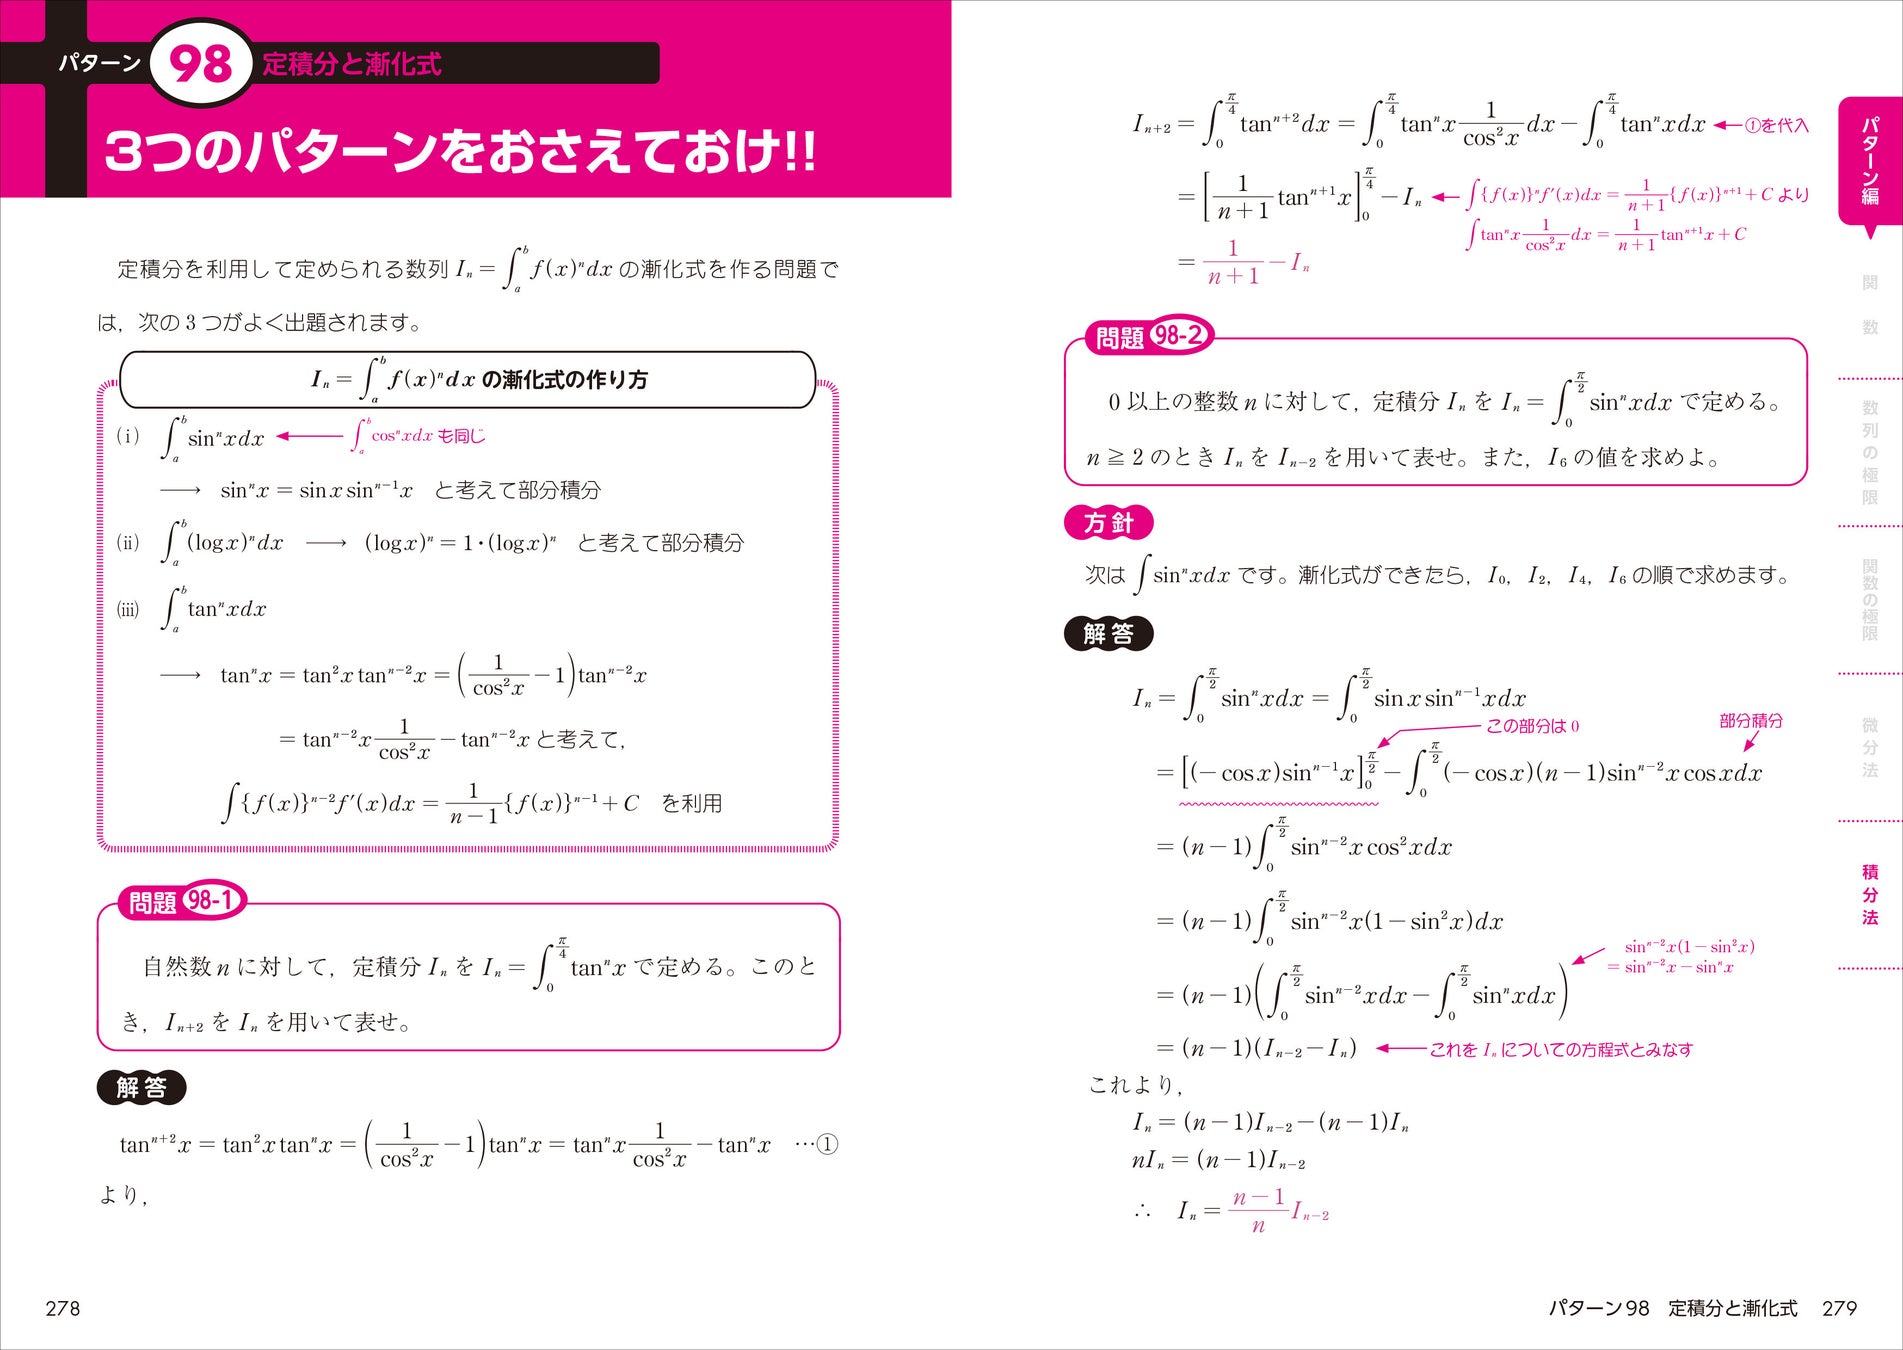 パターン 98 定積分と漸化式
3つのパターンをおさえておけ!!
定積分を利用して定められる数列 Iₙ = ∫ₐᵇ f(x)ⁿdx の漸化式を作る問題で
は，次の３つがよく出題されます。
Iₙ = ∫ₐᵇ f(x)ⁿdx の漸化式の作り方
(ⅰ) ∫ₐᵇ sinⁿxdx ← ∫ₐᵇ cosⁿxdx も同じ
⟶ sinⁿx = sin x sinⁿ⁻¹x と考えて部分積分
(ⅱ) ∫ₐᵇ (log x)ⁿdx ⟶ (log x)ⁿ = 1・(log x)ⁿ と考えて部分積分
(ⅲ) ∫ₐᵇ tanⁿxdx
⟶ tanⁿx = tan²x tanⁿ⁻²x = (1/cos²x − 1)tanⁿ⁻²x
= tanⁿ⁻²x 1/cos²x − tanⁿ⁻²x と考えて，
∫{f(x)}ⁿ⁻²f′(x)dx = 1/(n−1) {f(x)}ⁿ⁻¹ + C を利用
問題 98-1
自然数 n に対して，定積分 Iₙ を Iₙ = ∫₀^(π/4) tanⁿx で定める。このと
き，Iₙ₊₂ を Iₙ を用いて表せ。
解答
tanⁿ⁺²x = tan²x tanⁿx = (1/cos²x − 1)tanⁿx = tanⁿx 1/cos²x − tanⁿx …①
より，
278
Iₙ₊₂ = ∫₀^(π/4) tanⁿ⁺²dx = ∫₀^(π/4) tanⁿx 1/cos²x dx − ∫₀^(π/4) tanⁿxdx ← ①を代入
= [1/(n+1) tanⁿ⁺¹x]₀^(π/4) − Iₙ ← ∫{f(x)}ⁿf′(x)dx = 1/(n+1) {f(x)}ⁿ⁺¹ + C より
∫tanⁿx 1/cos²x dx = 1/(n+1) tanⁿ⁺¹x + C
= 1/(n+1) − Iₙ
問題 98-2
0 以上の整数 n に対して，定積分 Iₙ を Iₙ = ∫₀^(π/2) sinⁿxdx で定める。
n ≧ 2 のとき Iₙ を Iₙ₋₂ を用いて表せ。また，I₆ の値を求めよ。
方針
次は ∫sinⁿxdx です。漸化式ができたら，I₀，I₂，I₄，I₆ の順で求めます。
解答
Iₙ = ∫₀^(π/2) sinⁿxdx = ∫₀^(π/2) sin x sinⁿ⁻¹xdx
この部分は 0
部分積分
= [(−cos x)sinⁿ⁻¹x]₀^(π/2) − ∫₀^(π/2) (−cos x)(n−1)sinⁿ⁻²x cos xdx
= (n−1)∫₀^(π/2) sinⁿ⁻²x cos²xdx
= (n−1)∫₀^(π/2) sinⁿ⁻²x(1−sin²x)dx
sinⁿ⁻²x(1−sin²x)
= sinⁿ⁻²x − sinⁿx
= (n−1)(∫₀^(π/2) sinⁿ⁻²xdx − ∫₀^(π/2) sinⁿxdx)
= (n−1)(Iₙ₋₂ − Iₙ) ← これを Iₙ についての方程式とみなす
これより，
Iₙ = (n−1)Iₙ₋₂ − (n−1)Iₙ
nIₙ = (n−1)Iₙ₋₂
∴ Iₙ = (n−1)/n Iₙ₋₂
パターン98 定積分と漸化式 279
パターン編
関数
数列の極限
関数の極限
微分法
積分法